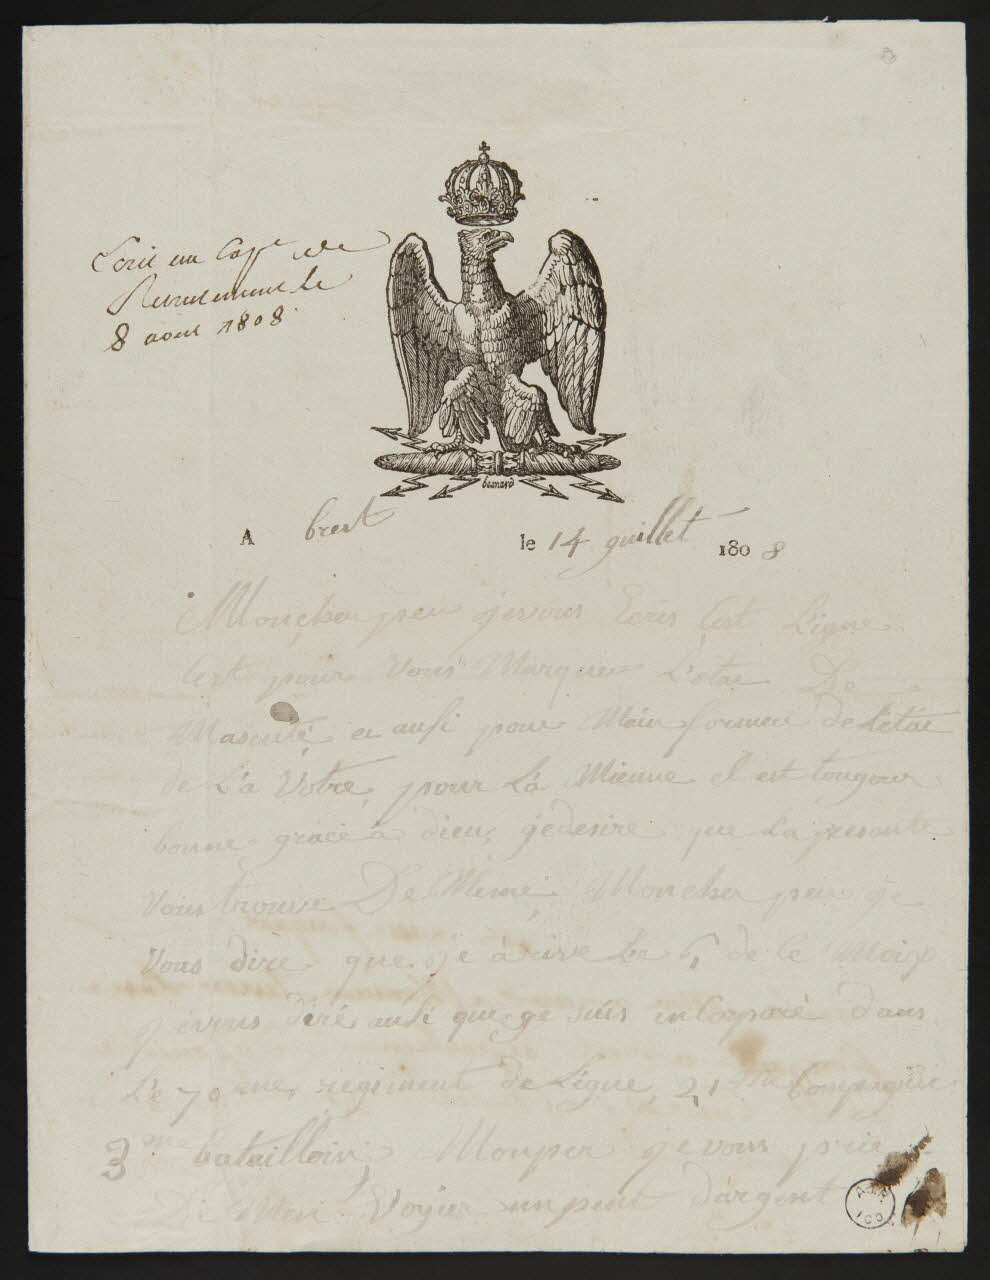 Ecrit au Cap^e de
Recrutement le
8 aout 1808
besnard
A brest le 14 guillet 1808
Moncher peu jevous Ecris Cest Ligne
Cest pour Vous Marquer L'etai De
Masenté et ausi pour Main former de letai
de La Votre, pour La Mienne il est tougour
bonne grace à dieu, gedesire que La presente
Vous trouve De Meme, Moncher peu ge
Vous dire que ge arive le 6 de Ce Moix
ge vous diré ausi que ge suis in Corporé dans
Le 70 eme regiment de Ligne, 21 me Compagnie
3 me batailloin, Monper ge vous prie
De Men Voyier un peut d'argent